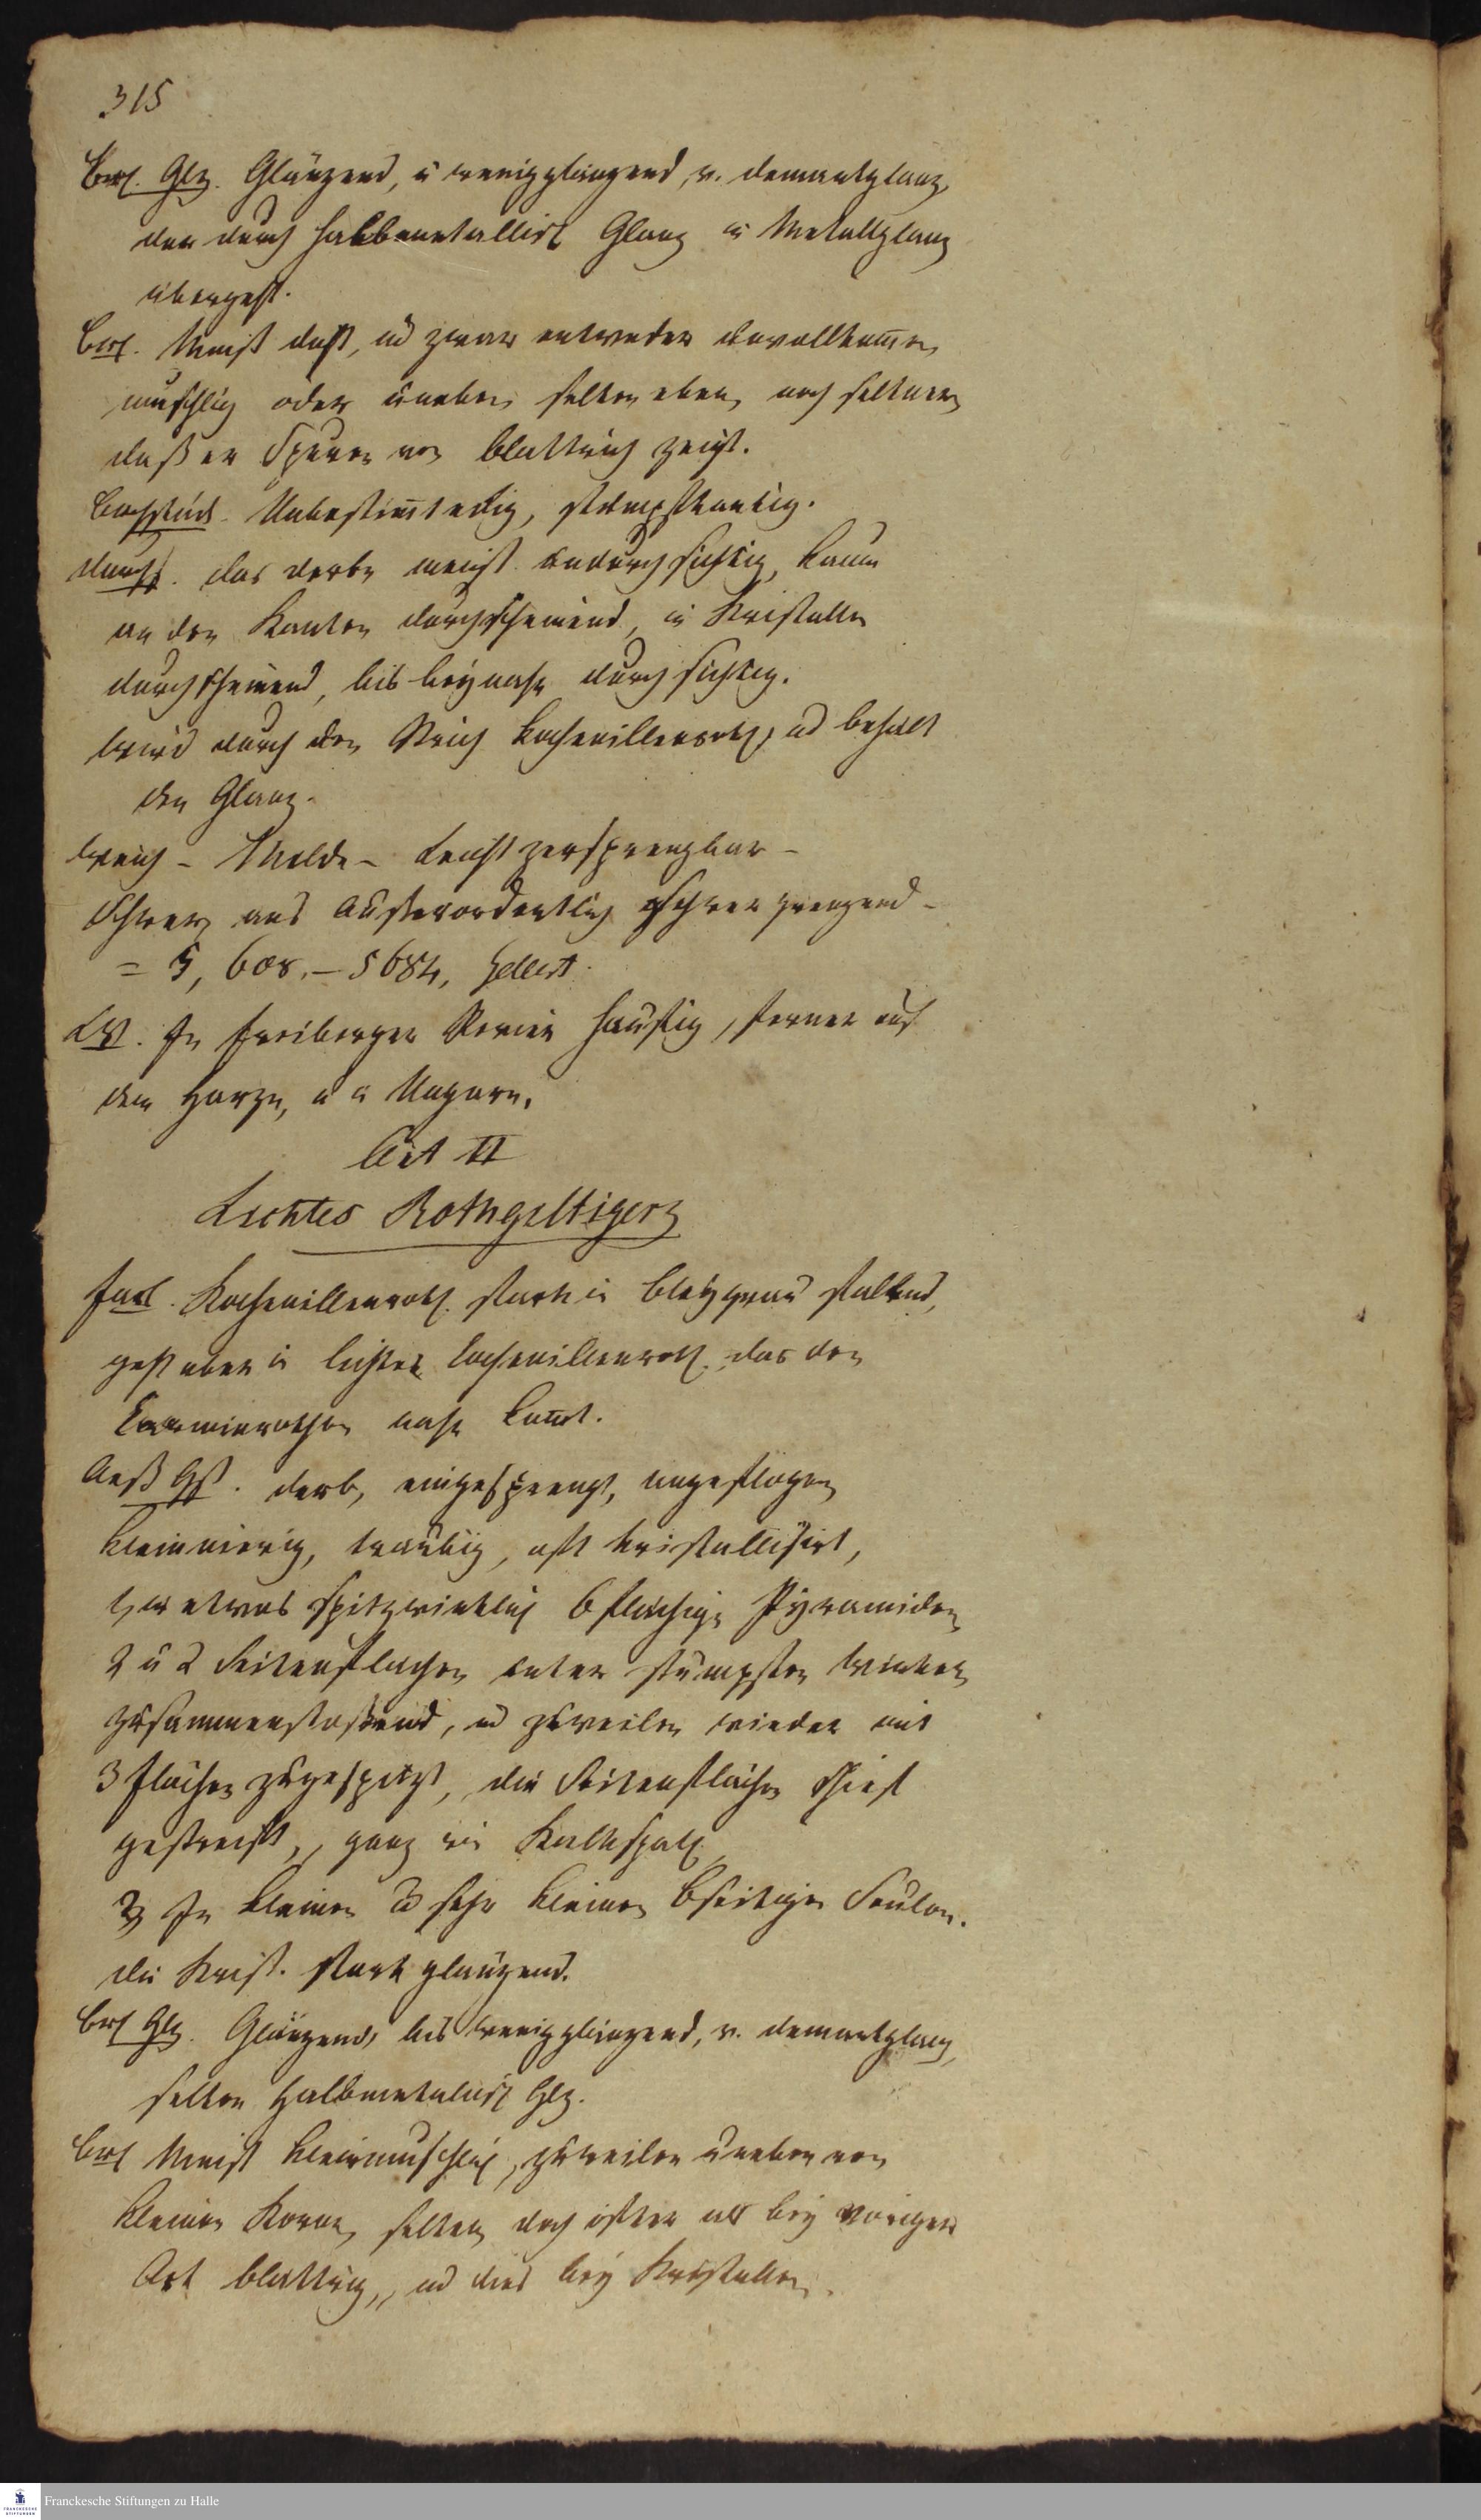 315
Bru. Glz. Glänzend, u wenigglänzend, v. demantglanz,
der durch halbmetallisch Glanz in Metallglanz
übergeht.
Bru. Meist dicht, und zwar entweder unvollkom̅en
muschlig oder uneben, selten eben, noch seltner
daß er Spuren von blättrich zeigt.
Bruchstück. Unbestim̅teckig, stumpfkantig.
durchs. das derbe meist undurchsichtig, kaum
an den Kanten durchscheinend, in Kristallen
durchscheinend, bis beynahe durchsichtig.
wird durch den Strich kochenillenroth, und behält
den Glanz.
Weich – Milde – Leicht zersprengbar –
Schwer, ans Außerordentlich schwer grenzend –
= 5, 608. – 5684, Gellert.
In Freiberger Revier häufig, ferner auf
dem Harze, u in Ungarn.
Art II
Lichtes Rothgiltigerz
Farb. Kochenillenroth stark in bleygrau fallend,
geht aber in lichtes kochenillenroth, das den
karminrothen nahe kom̅t.
Aeß Gst. derb, eingesprengt, angeflogen
kleinnierig, traubig, oft kristallisirt,
etwas spitzwinklich 6 flächige Pyramiden
2 u 2 Seitenflächen unter stumpfen Winkeln
zusammenstoßend, und zuweilen wieder mit
3 flächen zugespitzt, die Seitenflächen schief
gestreift, ganz wie Kalkspath
2) In kleinen und sehr kleinen 6seitigen Seulen.
die Krist. stark glänzend.
Bru Glz. Glänzend, bis wenigglänzend, v. demantglanz,
selten halbmetallisch Glz.
Bru Meist kleinmuschlich, zuweilen uneben von
kleinen Korne, selten doch öfter als bey voriger
Art blättrig, und dies bey Kristallen.
Franckesche Stiftungen zu Halle